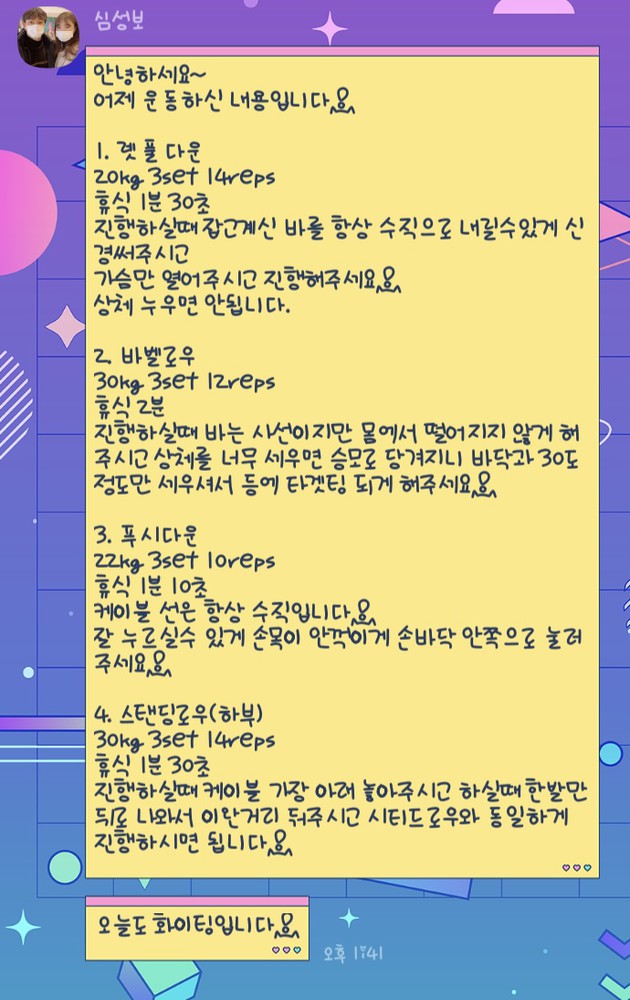 심성보
안녕하세요~
어제 운동하신 내용입니다
1. 렛 풀 다운
20kg 3set 14reps
휴식 1분 30초
진행하실때 잡고계신 바를 항상 수직으로 내릴수있게 신
경써주시고
가슴만 열어주시고 진행해주세요
상체 누우면 안됩니다.
2. 바벨로우
30kg 3set 12reps
휴식 2분
진행하실때 바는 사선이지만 몸에서 떨어지지 않게 해
주시고 상체를 너무 세우면 승모로 당겨지니 바닥과 30도
정도만 세우셔서 등에 타겟팅 되게 해주세요
3. 푸시다운
22kg 3set 10reps
휴식 1분 10초
케이블 선은 항상 수직입니다
잘 누르실수 있게 손목이 안꺽이게 손바닥 안쪽으로 눌러
주세요
4. 스탠딩로우(하부)
30kg 3set 14reps
휴식 1분 30초
진행하실때 케이블 가장 아래 놓아주시고 하실때 한발만
뒤로 나와서 이완거리 둬주시고 시티드로우와 동일하게
진행하시면 됩니다
오늘도 화이팅입니다
오후 1:41